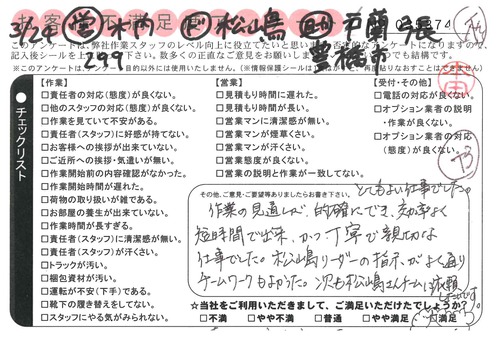 3/24 営 木内 ド 松嶋
299 豊橋市
このアンケートは、弊社作業スタッフのレベル向上に役立てたいと思いま
記入後シールを上
※このアンケートは、アンケート目的以外には使用いたしません。
チェックリスト
【作業】
□責任者の対応(態度)が良くない。
□他のスタッフの対応(態度)が良くない。
□作業を見ていて不安がある。
□責任者(スタッフ)に好感が持てない。
□お客様への挨拶が出来ていない。
□ご近所への挨拶・気遣いが無い。
□作業開始前の内容確認がなかった。
□作業開始時間が遅れた。
□荷物の取り扱いが雑である。
□お部屋の養生が出来ていない。
□作業時間が長すぎる。
□責任者(スタッフ)に清潔感が無い。
□責任者(スタッフ)が汗くさい。
□トラックが汚い。
□梱包資材が汚い。
□運転が不安(下手)である。
□靴下の履き替えをしてない。
□スタッフにやる気がみられない。
【営業】
□見積もり時間に遅れた。
□見積もり時間が長い。
□営業マンに清潔感が無い。
□営業マンが煙草くさい。
□営業マンが汗くさい。
□営業態度が良くない。
□営業の説明と作業が一致してない。
【受付・その他】
□電話の対応が良くない。
□オプション業者の説明
・作業が良くない。
□オプション業者の対応
(態度)が良くない。
その他、ご意見・ご要望等ありましたらお書き下さい。
とてもよい仕事でした。
作業の見通しが、的確にでき、効率よく
短時間で出来、かつ丁寧で親切な
仕事でした。松嶋リーダーの指示がよく通り
チームワークもよかった。次も松嶋さんチームに依頼
したいです。
☆当社をご利用いただきまして、ご満足いただけたでしょうか?
□不満 □やや不満 □普通 □やや満足 □満足